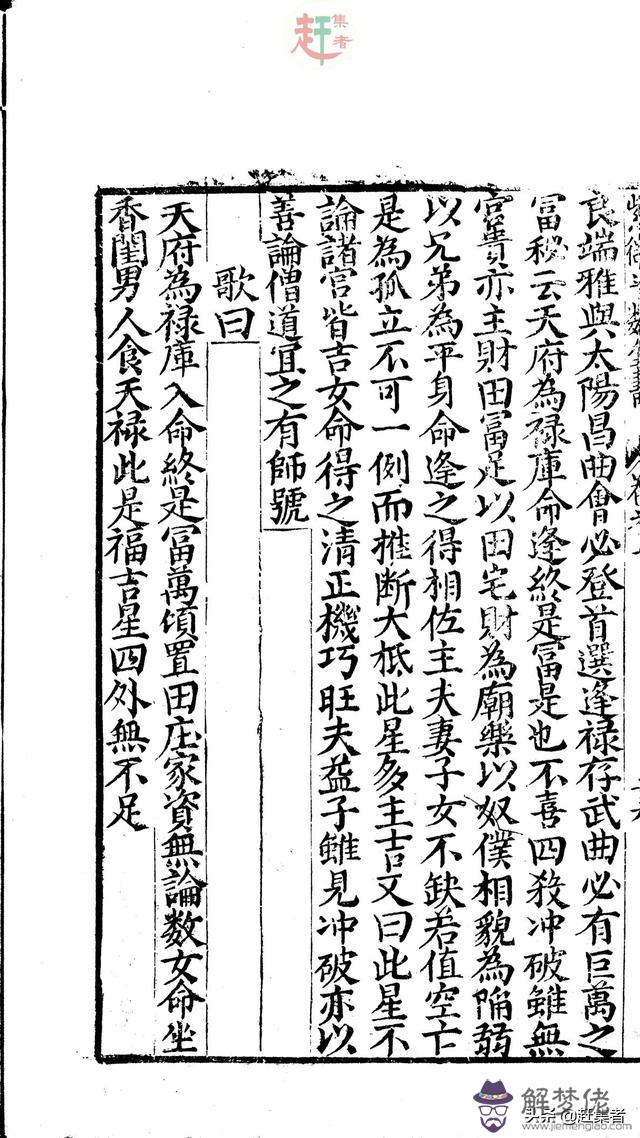 赶集者
良端雅與太陽昌曲會必登首選逢禄存武曲必有巨萬之
冨秘云天府為禄庫命逢終是冨是也不喜四殺冲破雖無
官貴亦主財田冨足以田宅財為廟樂以奴僕相貌為陥弱
以兄弟為平身命逢之得相佐主夫妻子女不缺若值空亡
是為孤立不可一例而推断大柢此星多主吉又曰此星不
論諸宫皆吉女命得之清正機巧旺夫益子雖見冲破亦以
善論僧道宜之有師號
歌曰
天府為禄庫入命終是冨萬頃置田庄家資無論数女命坐
香閨男人食天禄此是福吉星四外無不足
解梦佬
www.jiemenglao.com
头条@赶集者